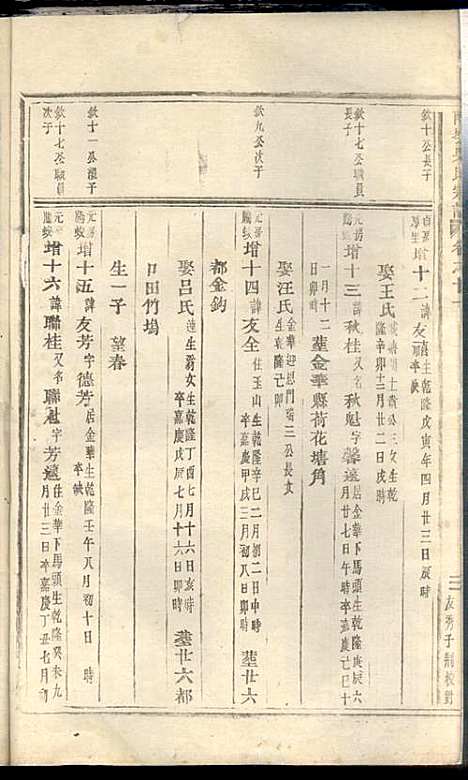 欽十公長子
增十二諱友禧生乾隆戊寅年四月廿三日辰時
卒缺
娶王氏
隆辛卯十二月廿二日戌時
欽十七公職員長子
增十三諱秋桂又名秋魁字馨遠
生乾隆庚辰六月廿七日午時卒嘉慶己巳十
一月十二日卯時
葬金華縣荷花塘角
娶汪氏金華迎恩門瑞三公長女
生乾隆己卯
欽九公次子
增十四諱友全住玉山生乾隆辛巳二月初二日中時
卒嘉慶甲戌三月初八日卯時
葬廿六
都金鈎
娶呂氏蓮生公女生乾隆丁酉七月十六日亥時
卒嘉慶戊辰七月十六日卯時
葬廿六都
口田竹塢
生一子 望春
欽十一公繼子
增十五諱友芳字德芳居金華生乾隆壬午八月初十日 時
卒缺
欽十七公職員次子
增十六諱聯桂又名聯魁字芳遠
住金華下馬頭生乾隆癸未九
月廿三日卒嘉慶丁丑七月初
三